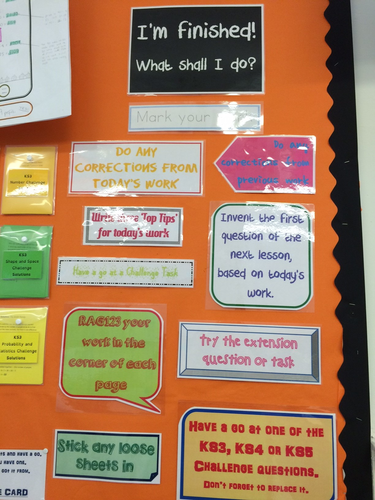 I'm finished!
What shall I do?
Mark your
DO ANY
CORRECTIONS FROM
TODAY'S WORK
Do any
corrections from
previous work
KS3
Number Challenge
Write three 'Top Tips'
for today's work
Invent the first
question of the
next lesson,
based on today's
work.
KS3
Shape and Space
Challenge
Solutions
Have a go at a Challenge Task
KS3
Probability and
Statistics Challenge
Solutions
RAG123 your
work in the
corner of each
page
try the extension
question or task
Stick any loose
sheets in
HAVE A GO AT ONE OF THE
KS3, KS4 OR KS5
CHALLENGE QUESTIONS.
DON'T FORGET TO REPLACE IT.
CARD